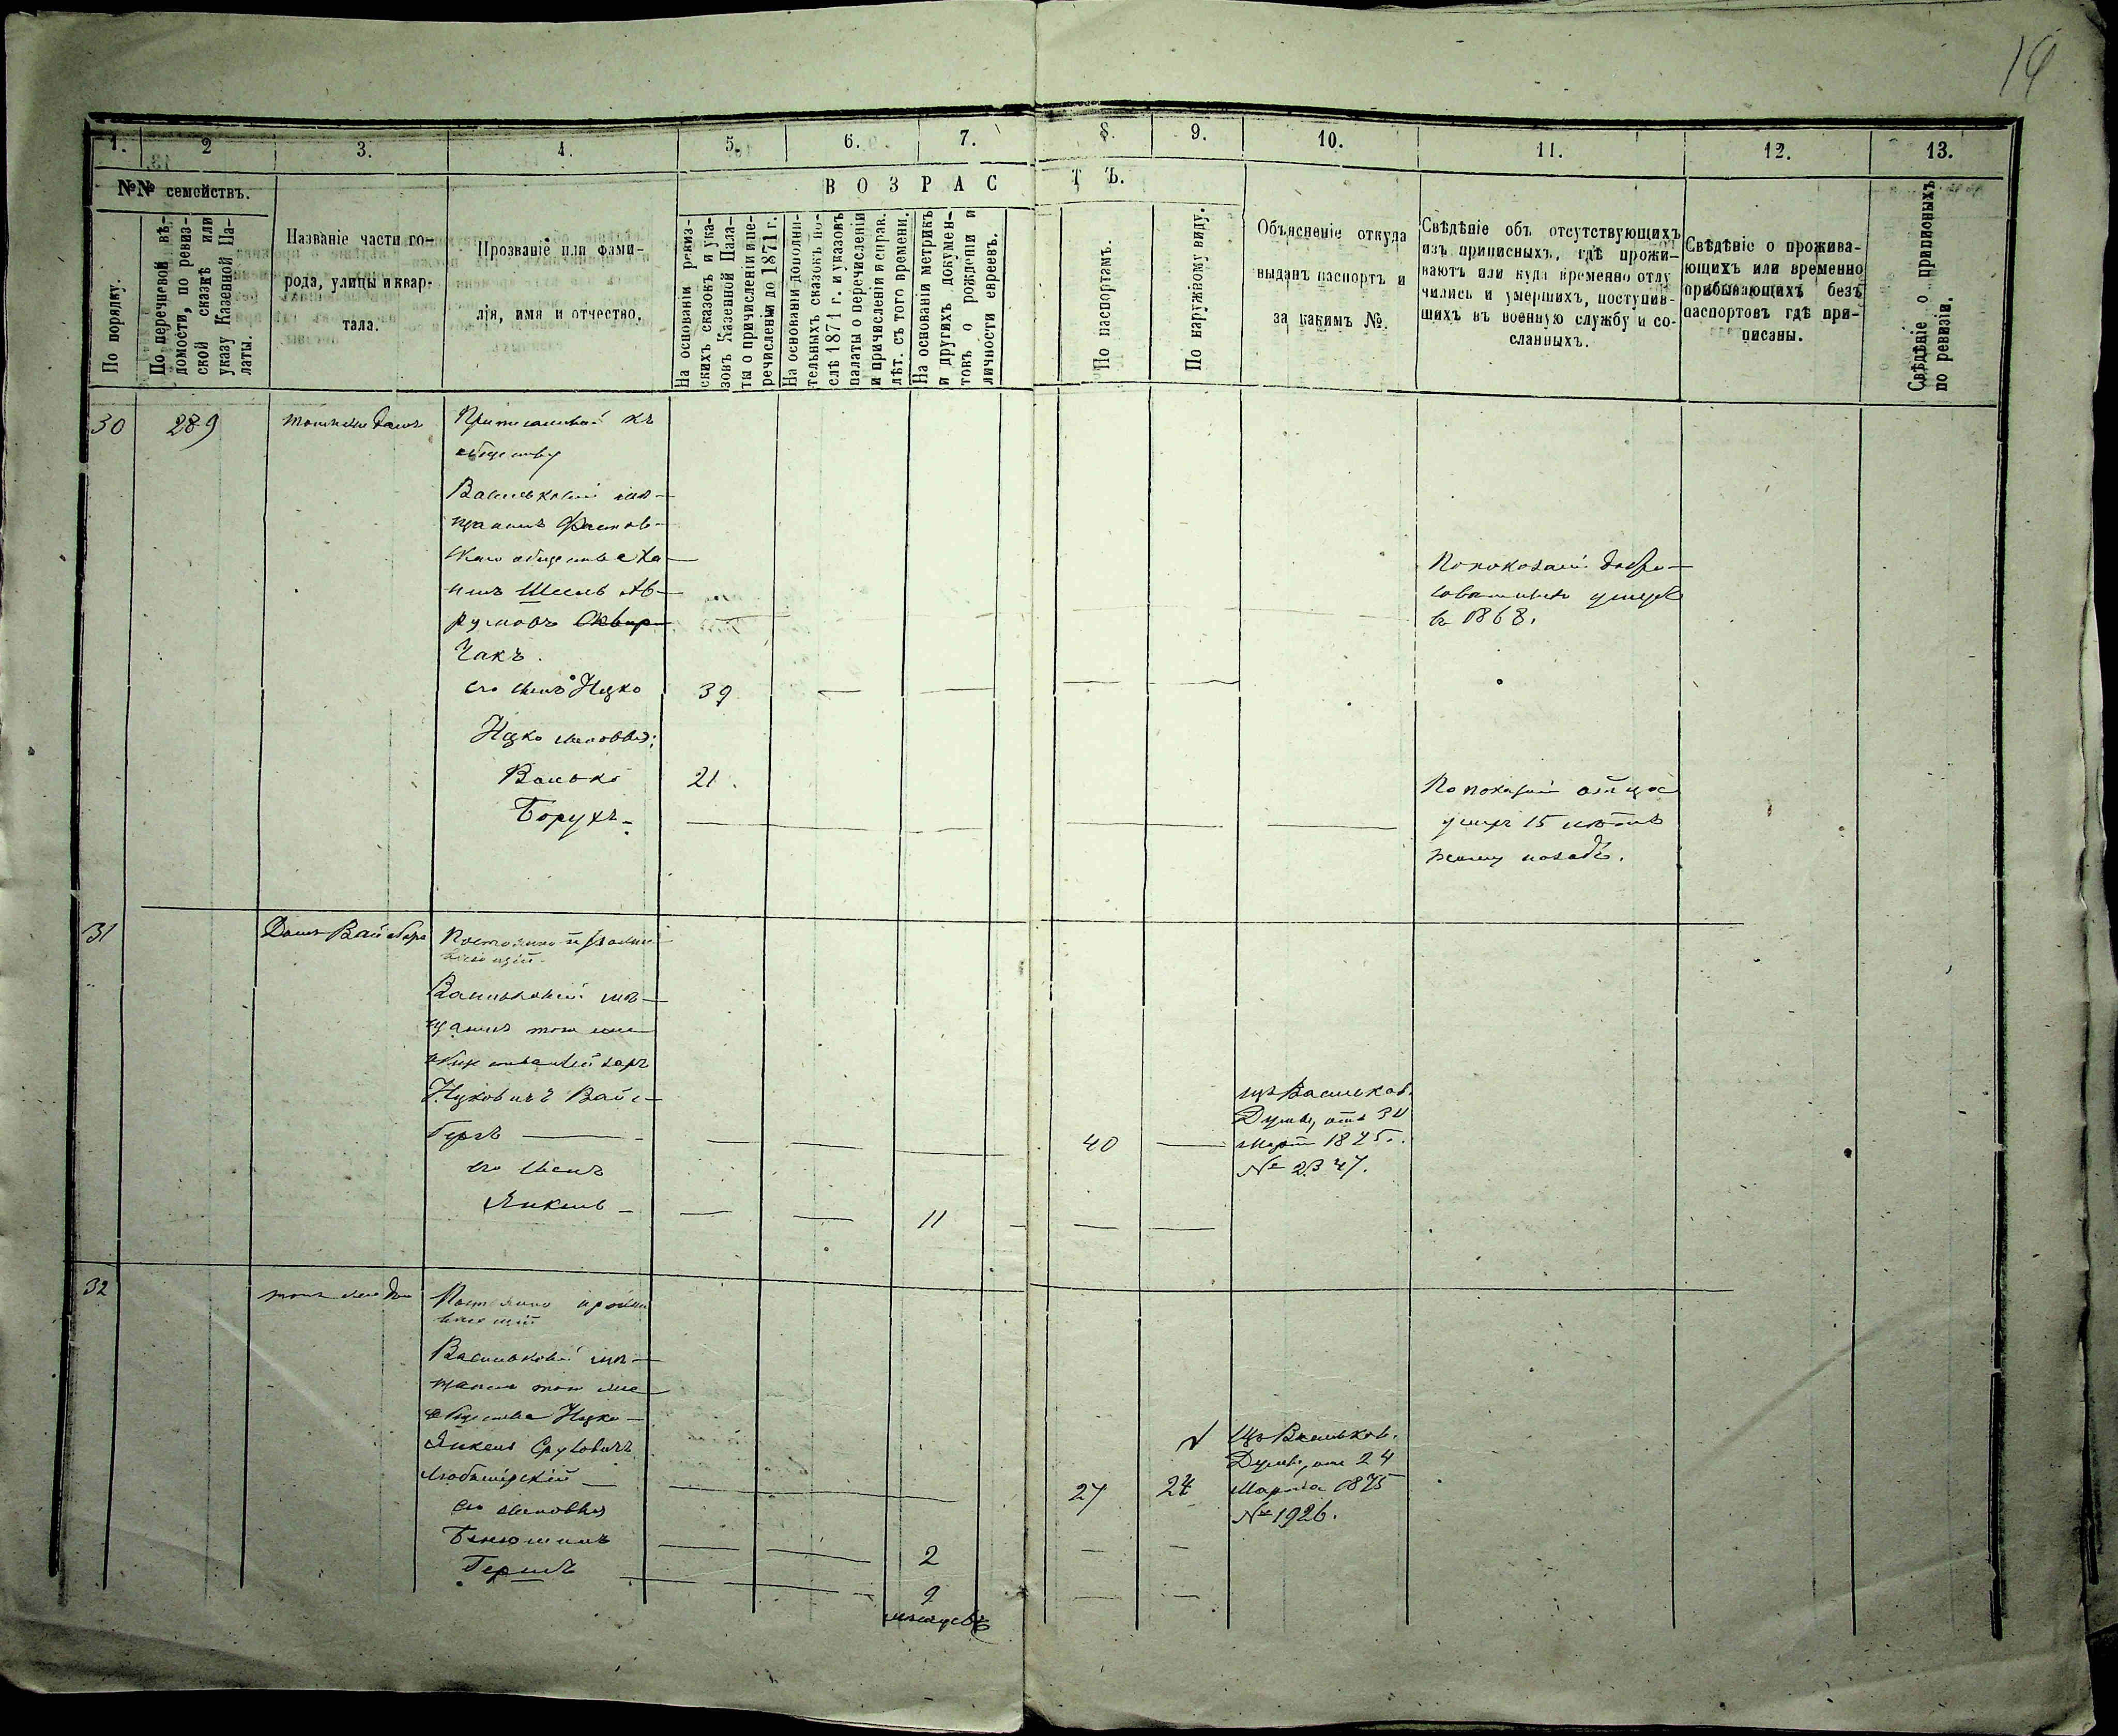 14
1.
2
3.
4.
5.
6.
7.
8.
9.
10.
11.
12.
13.
№№ семействъ.
В О З Р А С Т Ъ.
По порядку.
По перечневой вѣ-
домости, по ревиз-
ской сказкѣ или
указу Казенной Па-
латы.
Названіе части го-
рода, улицы и квар-
тала.
Прозваніе или фами-
лія, имя и отчество.
На основаніи ревиз-
скихъ сказокъ и ука-
зовъ Казенной Пала-
ты о причисленіи и пе-
речисленіи до 1871 г.
На основаніи дополни-
тельныхъ сказокъ по-
слѣ 1871 г. и указовъ
палаты о перечисленіи
и причисленіи и справ.
лѣт. съ того времени.
На основаніи метрикъ
и другихъ докумен-
товъ о рожденіи и
личности евреевъ.
По паспортамъ.
По наружному виду.
Объясненіе откуда
выданъ паспортъ и
за какимъ №.
Свѣдѣніе объ отсутствующихъ
изъ приписныхъ, гдѣ прожи-
ваютъ или куда временно отлу
чились и умершихъ, поступив-
шихъ въ военную службу и со-
сланныхъ.
Свѣдѣніе о прожива-
ющихъ или временно
прибывающихъ безъ
паспортовъ гдѣ при-
писаны.
Свѣдѣніе о приписныхъ
по ревизіи.
30
289
томъ же домѣ
Приписанный къ
обществу
Васильковскій мѣ-
щанинъ Фастов-
скаго общества Ха-
имъ Шеель Ав-
румовъ Сквир-
чакъ.
По показанію добро-
совѣстныхъ умеръ
въ 1868.
его сынъ Ицко
39
Ицко сыновья:
Волько
21.
Борухъ
По показанію отца
умеръ 15 лѣтъ
тому назадъ.
31
Домъ Вайсберга
Постоянно прожи-
вающій
Васильковскій мѣ-
щанинъ того же
общества Лейзаръ
Ицковичъ Вайс-
бергъ
40
Изъ Васильков.
Думы, отъ 31
Марта 1875 г.
№ 2347.
его сынъ
Янкель
11
32
томъ же дом
Постоянно прожи-
вающій
Васильковскій мѣ-
щанинъ того же
общества Ицко-
Янкель Сруловичъ
Любашірскій
27
24
Изъ Васильков.
Думы, отъ 24
Марта 1875
№ 1926.
его сыновья
Беньюминъ
2
Гершъ
9
мѣсяцевъ